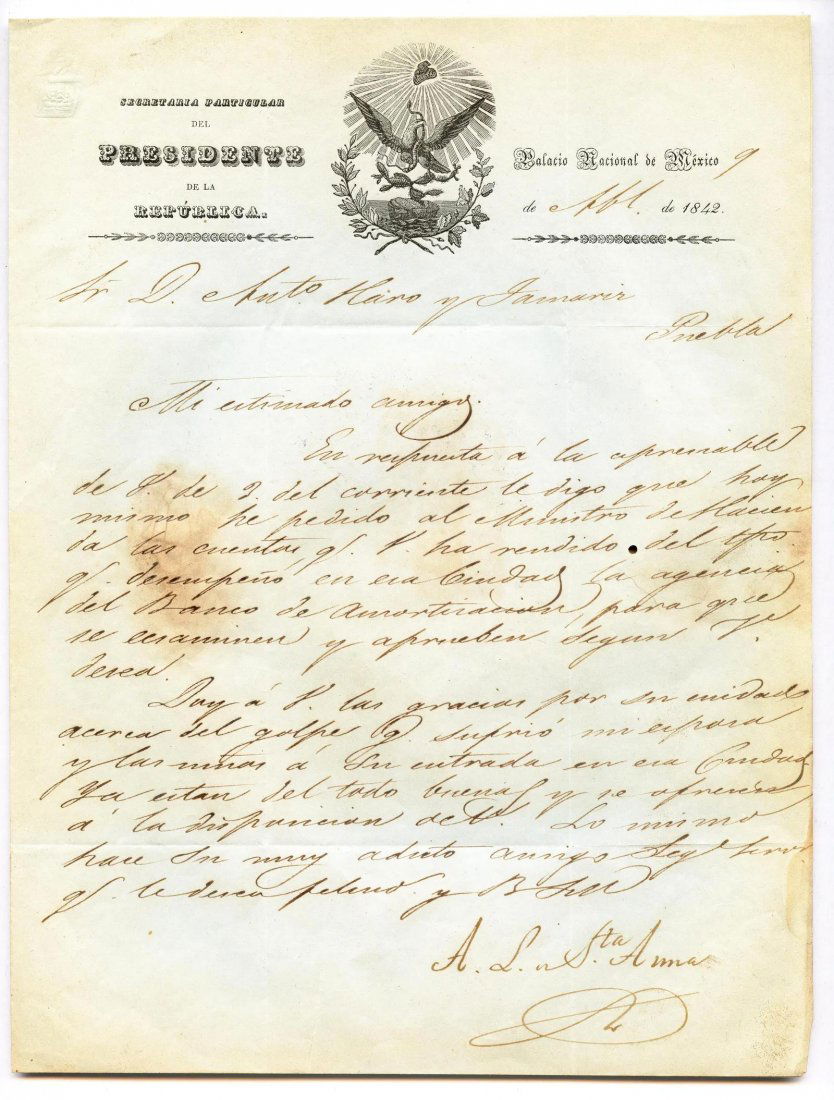 SECRETARIA PARTICULAR
DEL
PRESIDENTE
DE LA
REPÚBLICA.
Palacio Nacional de México 9
de Abl. de 1842.
Sr. D. Anto. Haro y Tamariz
Puebla
Mi estimado amigo.
En respuesta á la apreciable
de V. de 2. del corriente le digo que hoy
mismo he pedido al Ministro de Hacien
da las cuentas q. V. ha rendido del tpo.
q. desempeñó en esa Ciudad la agencia
del Banco de Amortizacion, para que
se ecsaminen y aprueben segun V.
desea.
Doy á V. las gracias por su cuidado
acerca del golpe q. sufrió mi esposa
y las niñas á su entrada en esa Ciudad
Ya estan del todo buenas y se ofrecen
á la disposicion de V. Lo mismo
hace su muy adicto amigo Segº. serv
q. le desea felicd. y B S M
A. L. de Sta Anna